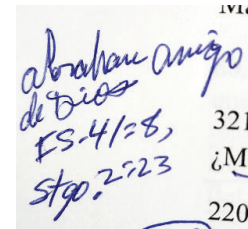 abraham amigo
de Dios
IS-41=8,
Stgo. 2=23
321
¿M
220